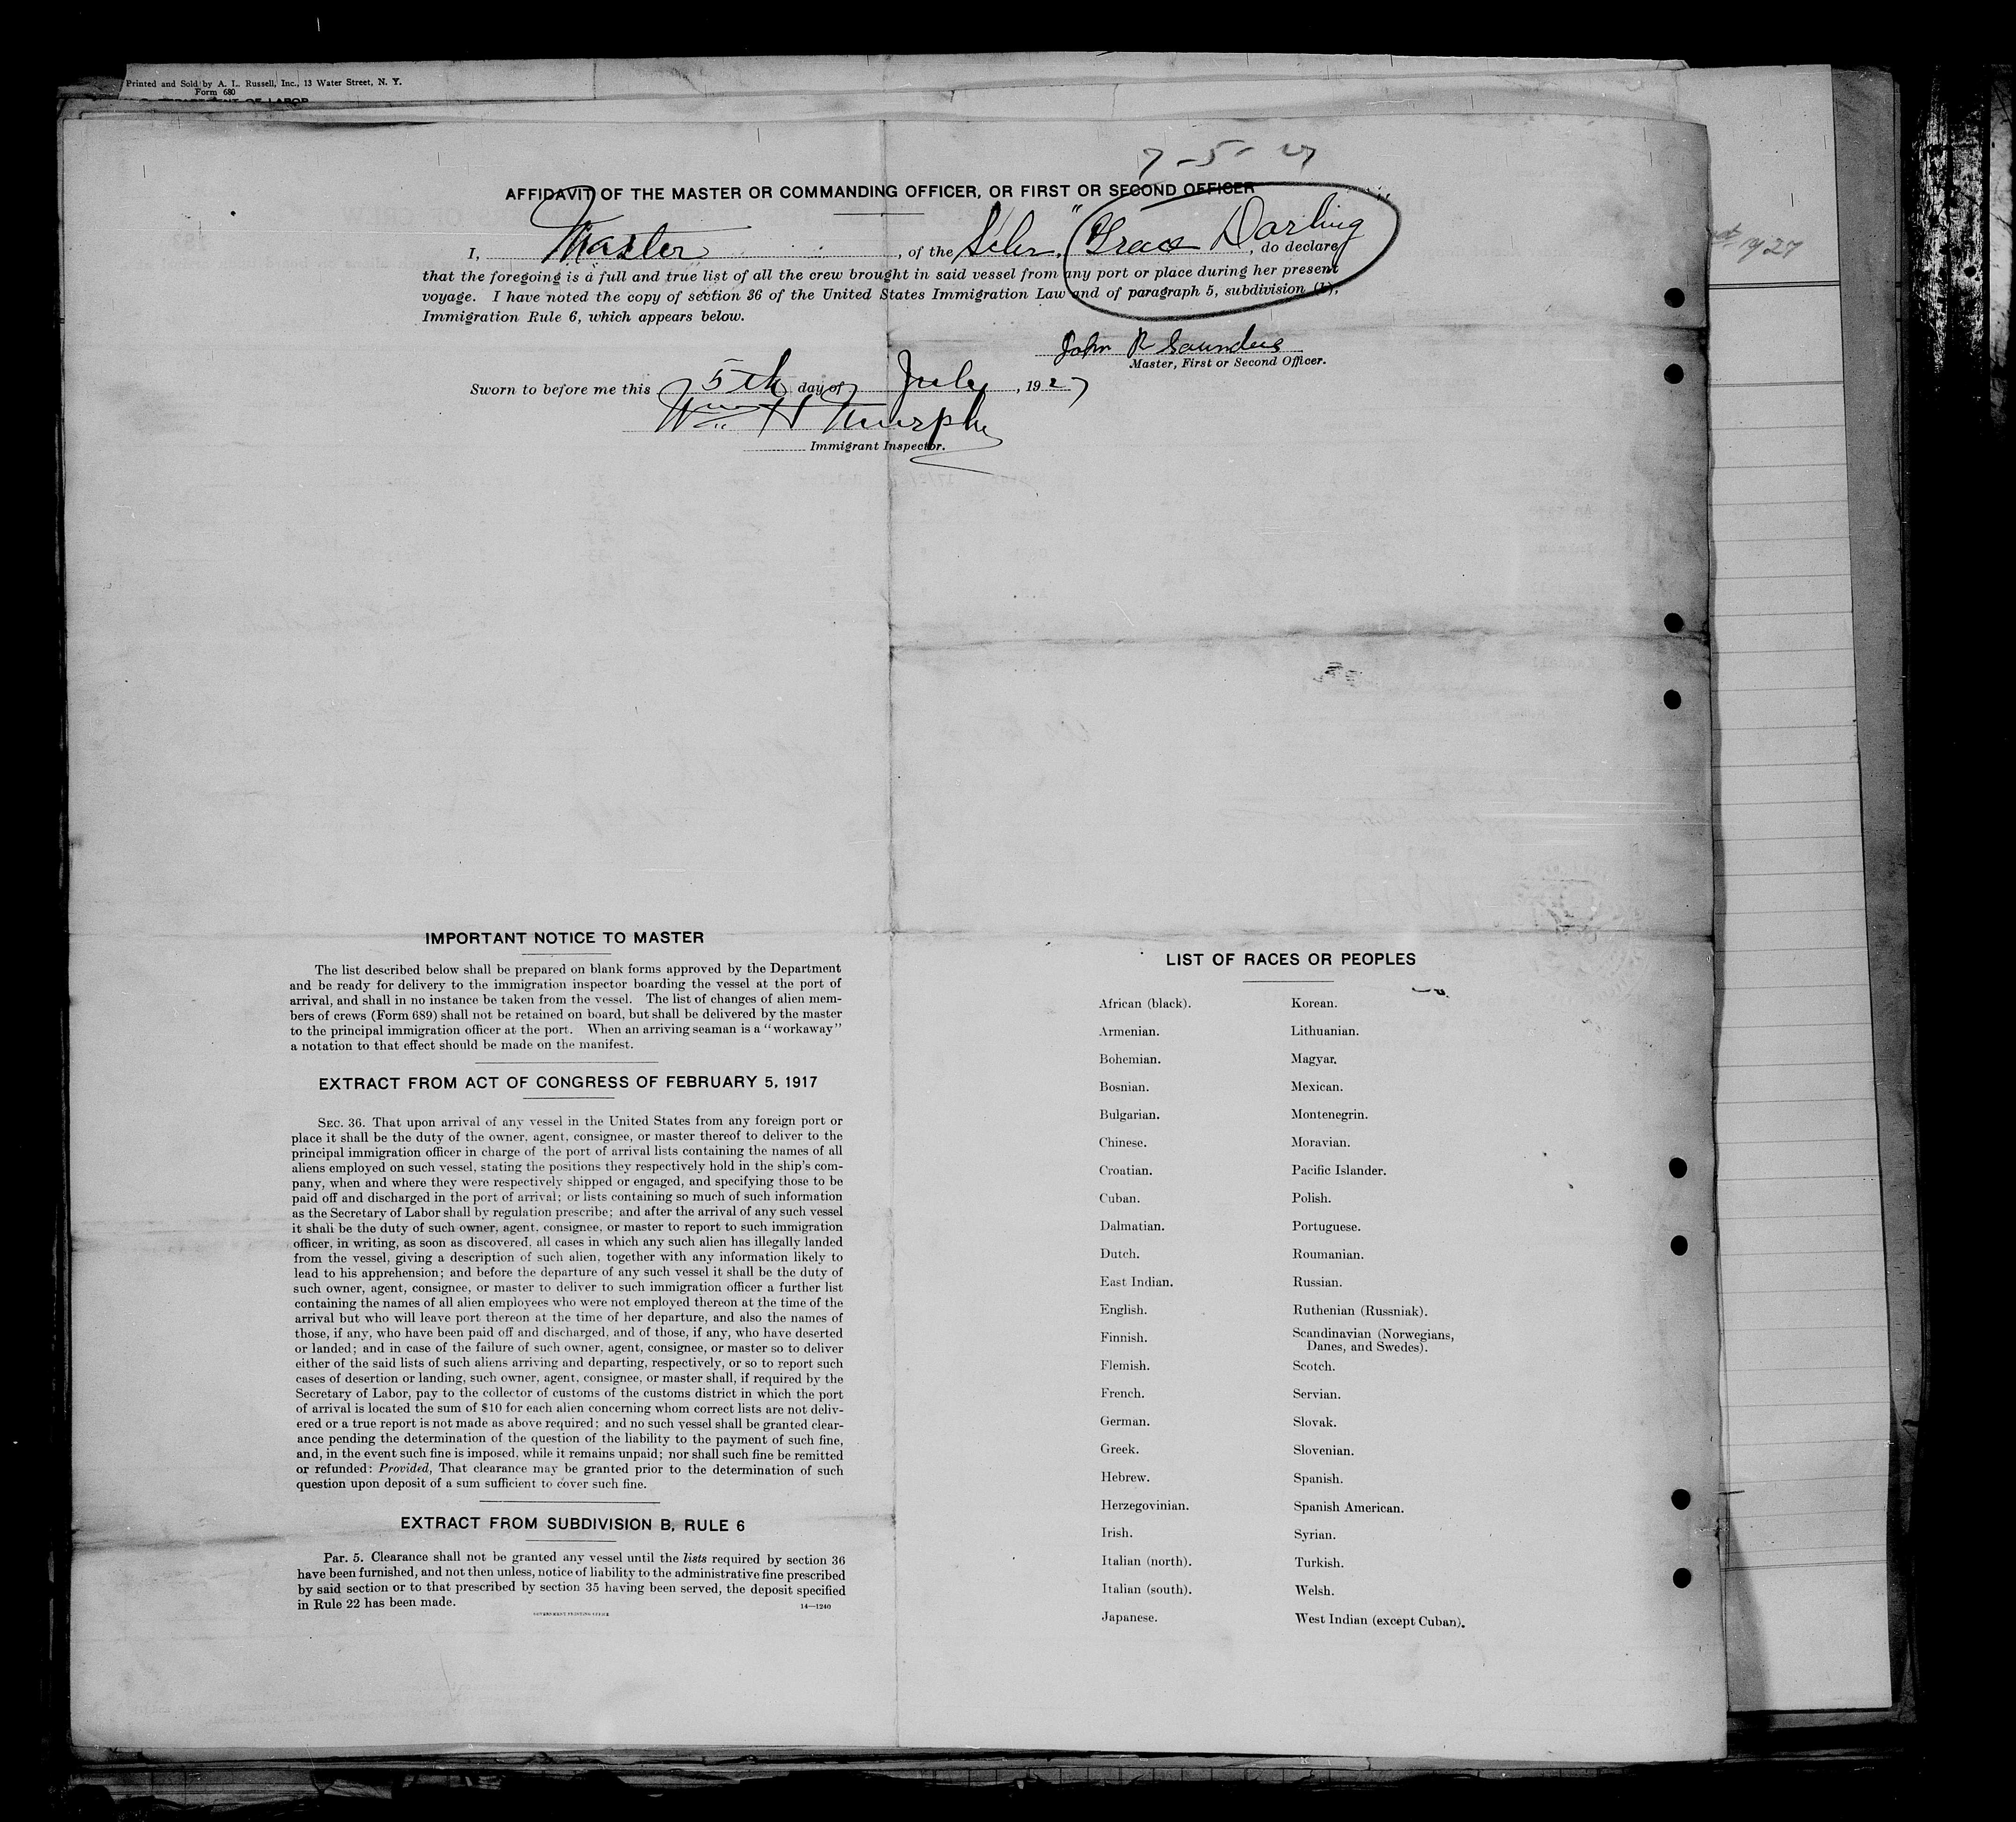 Printed and Sold by A. L. Russell, Inc., 13 Water Street, N. Y.
Form 680
DEPARTMENT OF LABOR
7-5-27
AFFIDAVIT OF THE MASTER OR COMMANDING OFFICER, OR FIRST OR SECOND OFFICER
I, Master, of the Schr. "Grace Darling", do declare
that the foregoing is a full and true list of all the crew brought in said vessel from any port or place during her present
voyage. I have noted the copy of section 36 of the United States Immigration Law and of paragraph 5, subdivision (b),
Immigration Rule 6, which appears below.
John R Saunders
Master, First or Second Officer.
Sworn to before me this 5th day of July, 1927
Wm H Murphy
Immigrant Inspector.
1927
IMPORTANT NOTICE TO MASTER
The list described below shall be prepared on blank forms approved by the Department
and be ready for delivery to the immigration inspector boarding the vessel at the port of
arrival, and shall in no instance be taken from the vessel. The list of changes of alien mem-
bers of crews (Form 689) shall not be retained on board, but shall be delivered by the master
to the principal immigration officer at the port. When an arriving seaman is a "workaway"
a notation to that effect should be made on the manifest.
EXTRACT FROM ACT OF CONGRESS OF FEBRUARY 5, 1917
SEC. 36. That upon arrival of any vessel in the United States from any foreign port or
place it shall be the duty of the owner, agent, consignee, or master thereof to deliver to the
principal immigration officer in charge of the port of arrival lists containing the names of all
aliens employed on such vessel, stating the positions they respectively hold in the ship's com-
pany, when and where they were respectively shipped or engaged, and specifying those to be
paid off and discharged in the port of arrival; or lists containing so much of such information
as the Secretary of Labor shall by regulation prescribe; and after the arrival of any such vessel
it shall be the duty of such owner, agent, consignee, or master to report to such immigration
officer, in writing, as soon as discovered, all cases in which any such alien has illegally landed
from the vessel, giving a description of such alien, together with any information likely to
lead to his apprehension; and before the departure of any such vessel it shall be the duty of
such owner, agent, consignee, or master to deliver to such immigration officer a further list
containing the names of all alien employees who were not employed thereon at the time of the
arrival but who will leave port thereon at the time of her departure, and also the names of
those, if any, who have been paid off and discharged, and of those, if any, who have deserted
or landed; and in case of the failure of such owner, agent, consignee, or master so to deliver
either of the said lists of such aliens arriving and departing, respectively, or so to report such
cases of desertion or landing, such owner, agent, consignee, or master shall, if required by the
Secretary of Labor, pay to the collector of customs of the customs district in which the port
of arrival is located the sum of $10 for each alien concerning whom correct lists are not deliv-
ered or a true report is not made as above required; and no such vessel shall be granted clear-
ance pending the determination of the question of the liability to the payment of such fine,
and, in the event such fine is imposed, while it remains unpaid; nor shall such fine be remitted
or refunded: Provided, That clearance may be granted prior to the determination of such
question upon deposit of a sum sufficient to cover such fine.
EXTRACT FROM SUBDIVISION B, RULE 6
Par. 5. Clearance shall not be granted any vessel until the lists required by section 36
have been furnished, and not then unless, notice of liability to the administrative fine prescribed
by said section or to that prescribed by section 35 having been served, the deposit specified
in Rule 22 has been made.
14—1240
GOVERNMENT PRINTING OFFICE
LIST OF RACES OR PEOPLES
African (black).
Armenian.
Bohemian.
Bosnian.
Bulgarian.
Chinese.
Croatian.
Cuban.
Dalmatian.
Dutch.
East Indian.
English.
Finnish.
Flemish.
French.
German.
Greek.
Hebrew.
Herzegovinian.
Irish.
Italian (north).
Italian (south).
Japanese.
Korean.
Lithuanian.
Magyar.
Mexican.
Montenegrin.
Moravian.
Pacific Islander.
Polish.
Portuguese.
Roumanian.
Russian.
Ruthenian (Russniak).
Scandinavian (Norwegians,
Danes, and Swedes).
Scotch.
Servian.
Slovak.
Slovenian.
Spanish.
Spanish American.
Syrian.
Turkish.
Welsh.
West Indian (except Cuban).